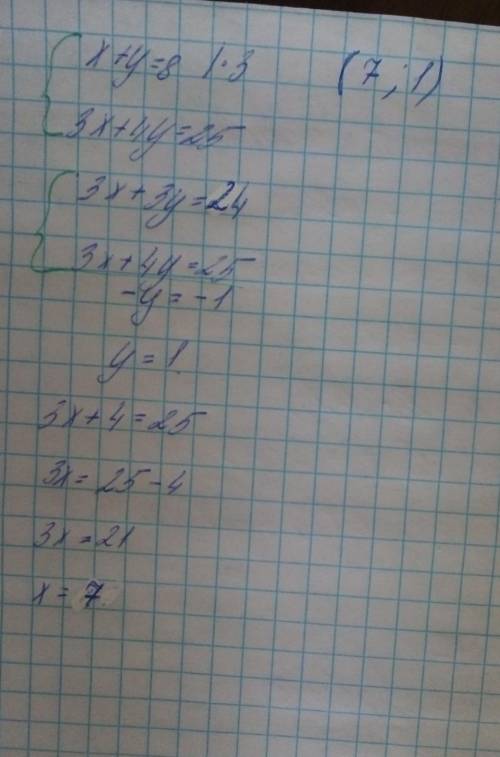 x+y=8 |·3 (7;1)
3x+4y=25
3x+3y=24
3x+4y=25
-y=-1
y=1
3x+4=25
3x=25-4
3x=21
x=7